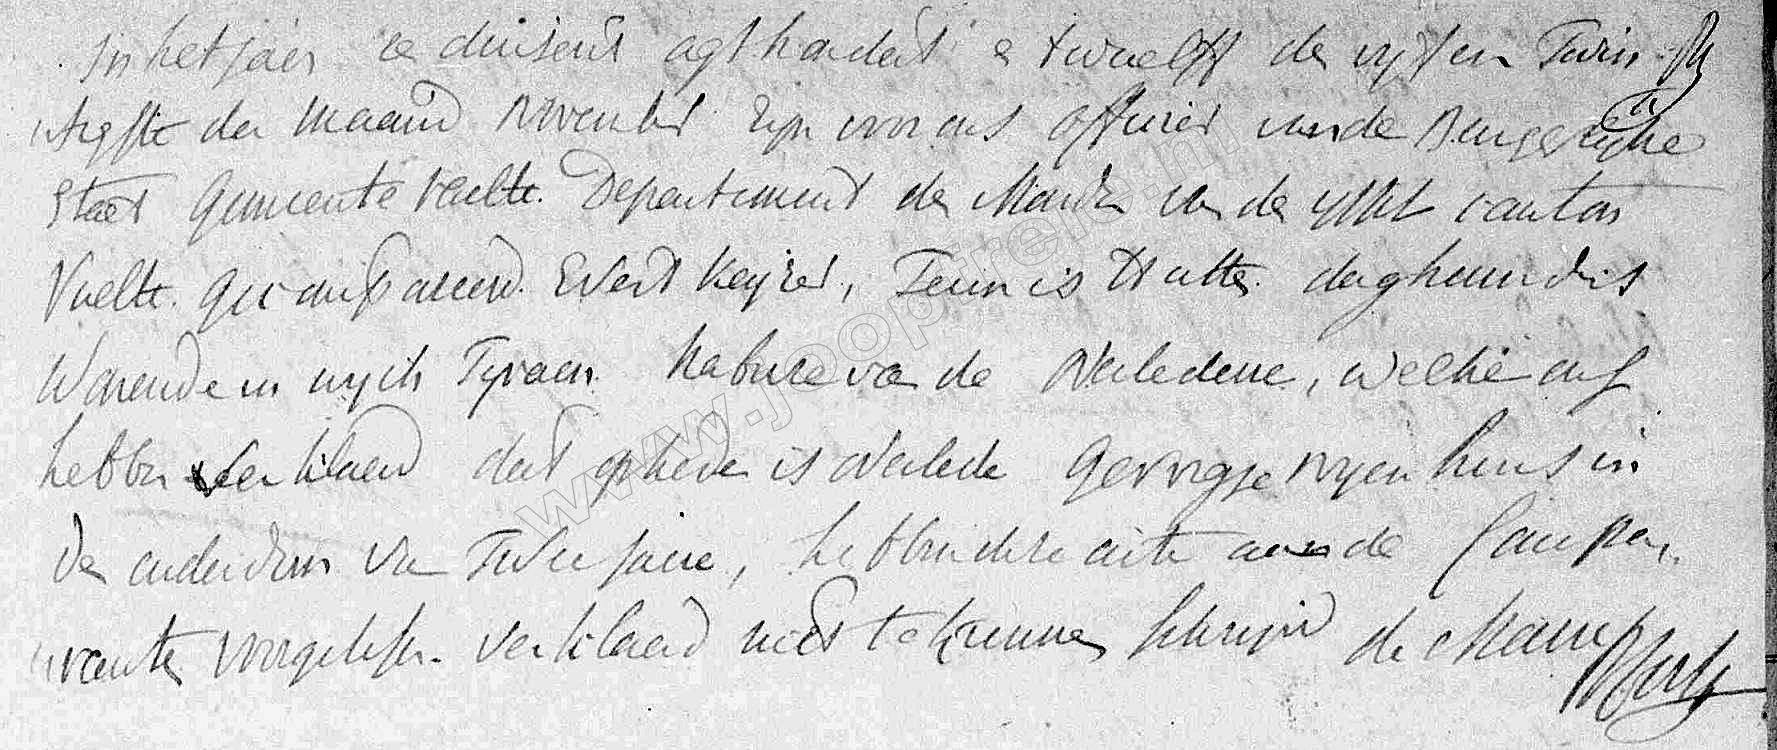 In het jaer een duisent agt hondert en twaelff de vyf en Twin-
tigste der maand November Zijn voor ons Officier van de Burgerlijke
Staet gemeente Vaelte Departement der Monden van de Yssel canton
Vaelte gecompareerd Evert Keyzer, Teunis Hutten daghuurders
Wonende in wyck nabure van de Overledene, welke ons
hebben verklaerd dat op heden is overleden nyenhuis in
den ouderdom van Twee jaere, hebbende acte aan de Compa-
ranten voorgelesen verklaerd niet te kunnen schryven de Maire
www.joopfreie.nl